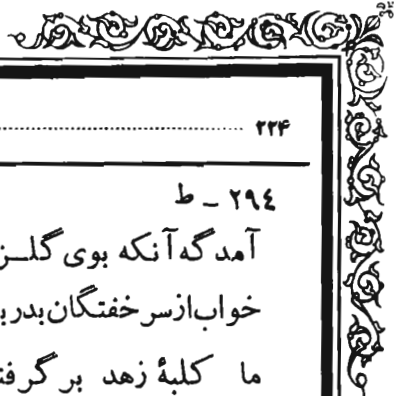 ۲۲۴
۲۹٤ - ط
آمد گه آنکه بوی گلـز
خواب از سر خفتگان بدر
ما کلبهٔ زهد بر گرفت